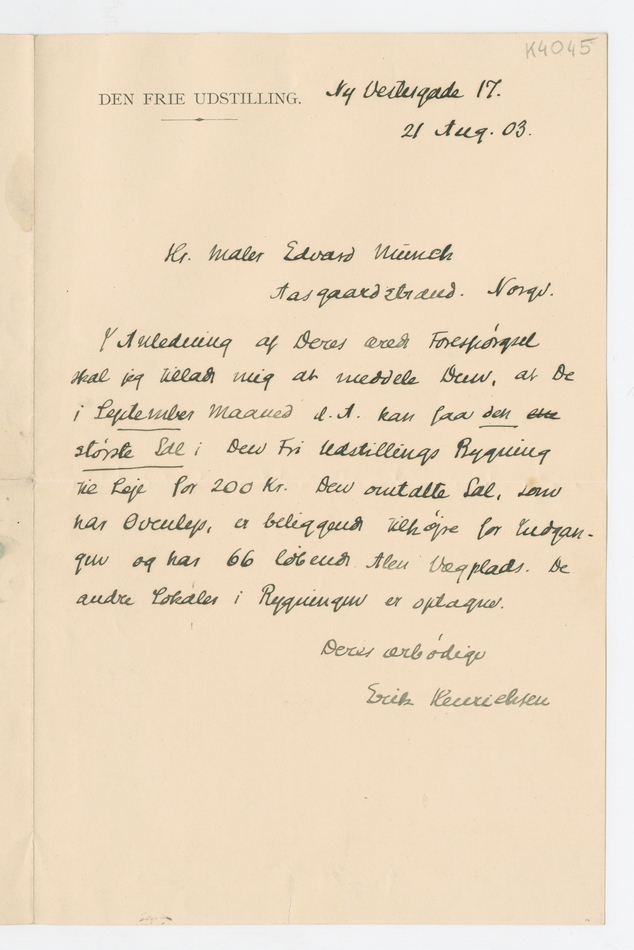 K4045
DEN FRIE UDSTILLING. Ny Vestergade 17.
21 Aug. 03.
Hr. Maler Edvard Munch
Aasgaardstrand. Norge.
I Anledning af Deres ærede Forespørgsel
skal jeg tillade mig at meddele Dem, at De
i September Maaned d. A. kan faa den
største Sal i Den Frie Udstillings Bygning
til Leje for 200 Kr. Den omtalte Sal, som
har Ovenlys, er beliggende tilhøjre for Indgan-
gen og har 66 løbende Alen Vægplads. De
andre Lokaler i Bygningen er optagne.
Deres ærbødige
Erik Henrichsen